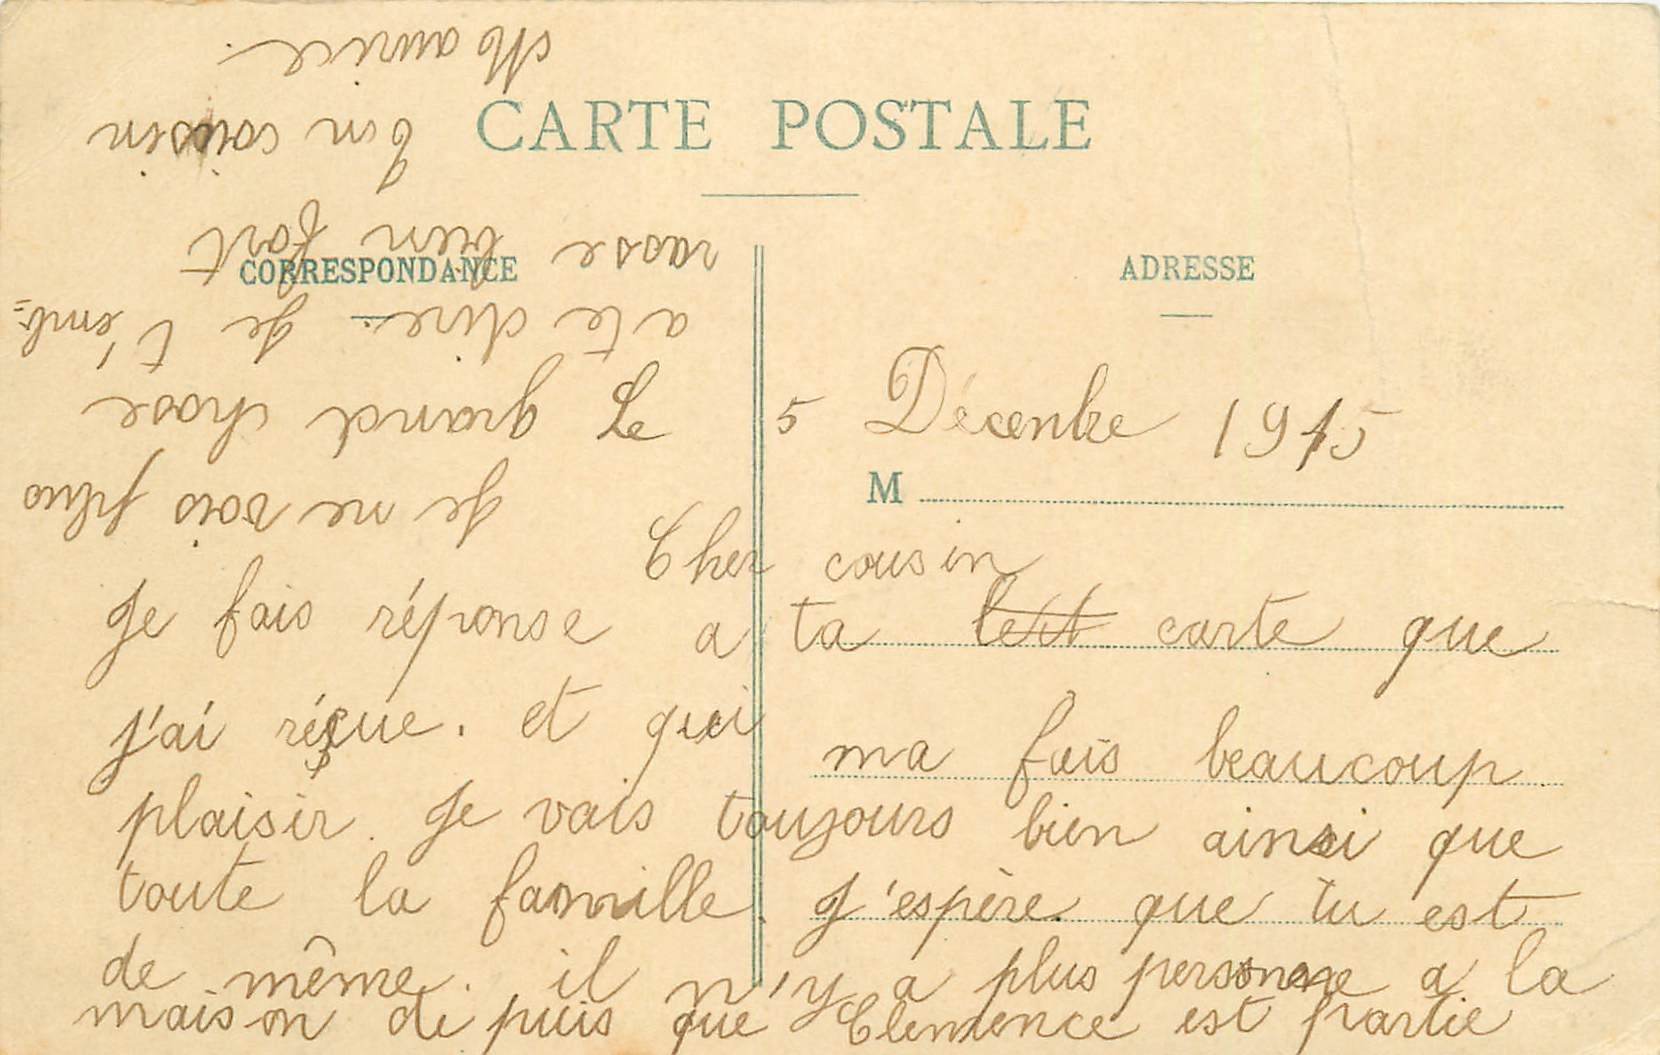 CARTE POSTALE
CORRESPONDANCE
ADRESSE
M
Le 5 Décenbre 1915
Cher cousin
Je fais réponse a ta carte que
j'ai réçue. et qui ma fais beaucoup
plaisir. Je vais toujours bien ainsi que
toute la famille. J'espère que tu est
de même. il n'y a plus personne a la
maison depuis que Clemence est partie
Je ne vois plus
grand chose
a te dire. Je t'emb=
rasse bien fort
Ton cousin
Maurice.